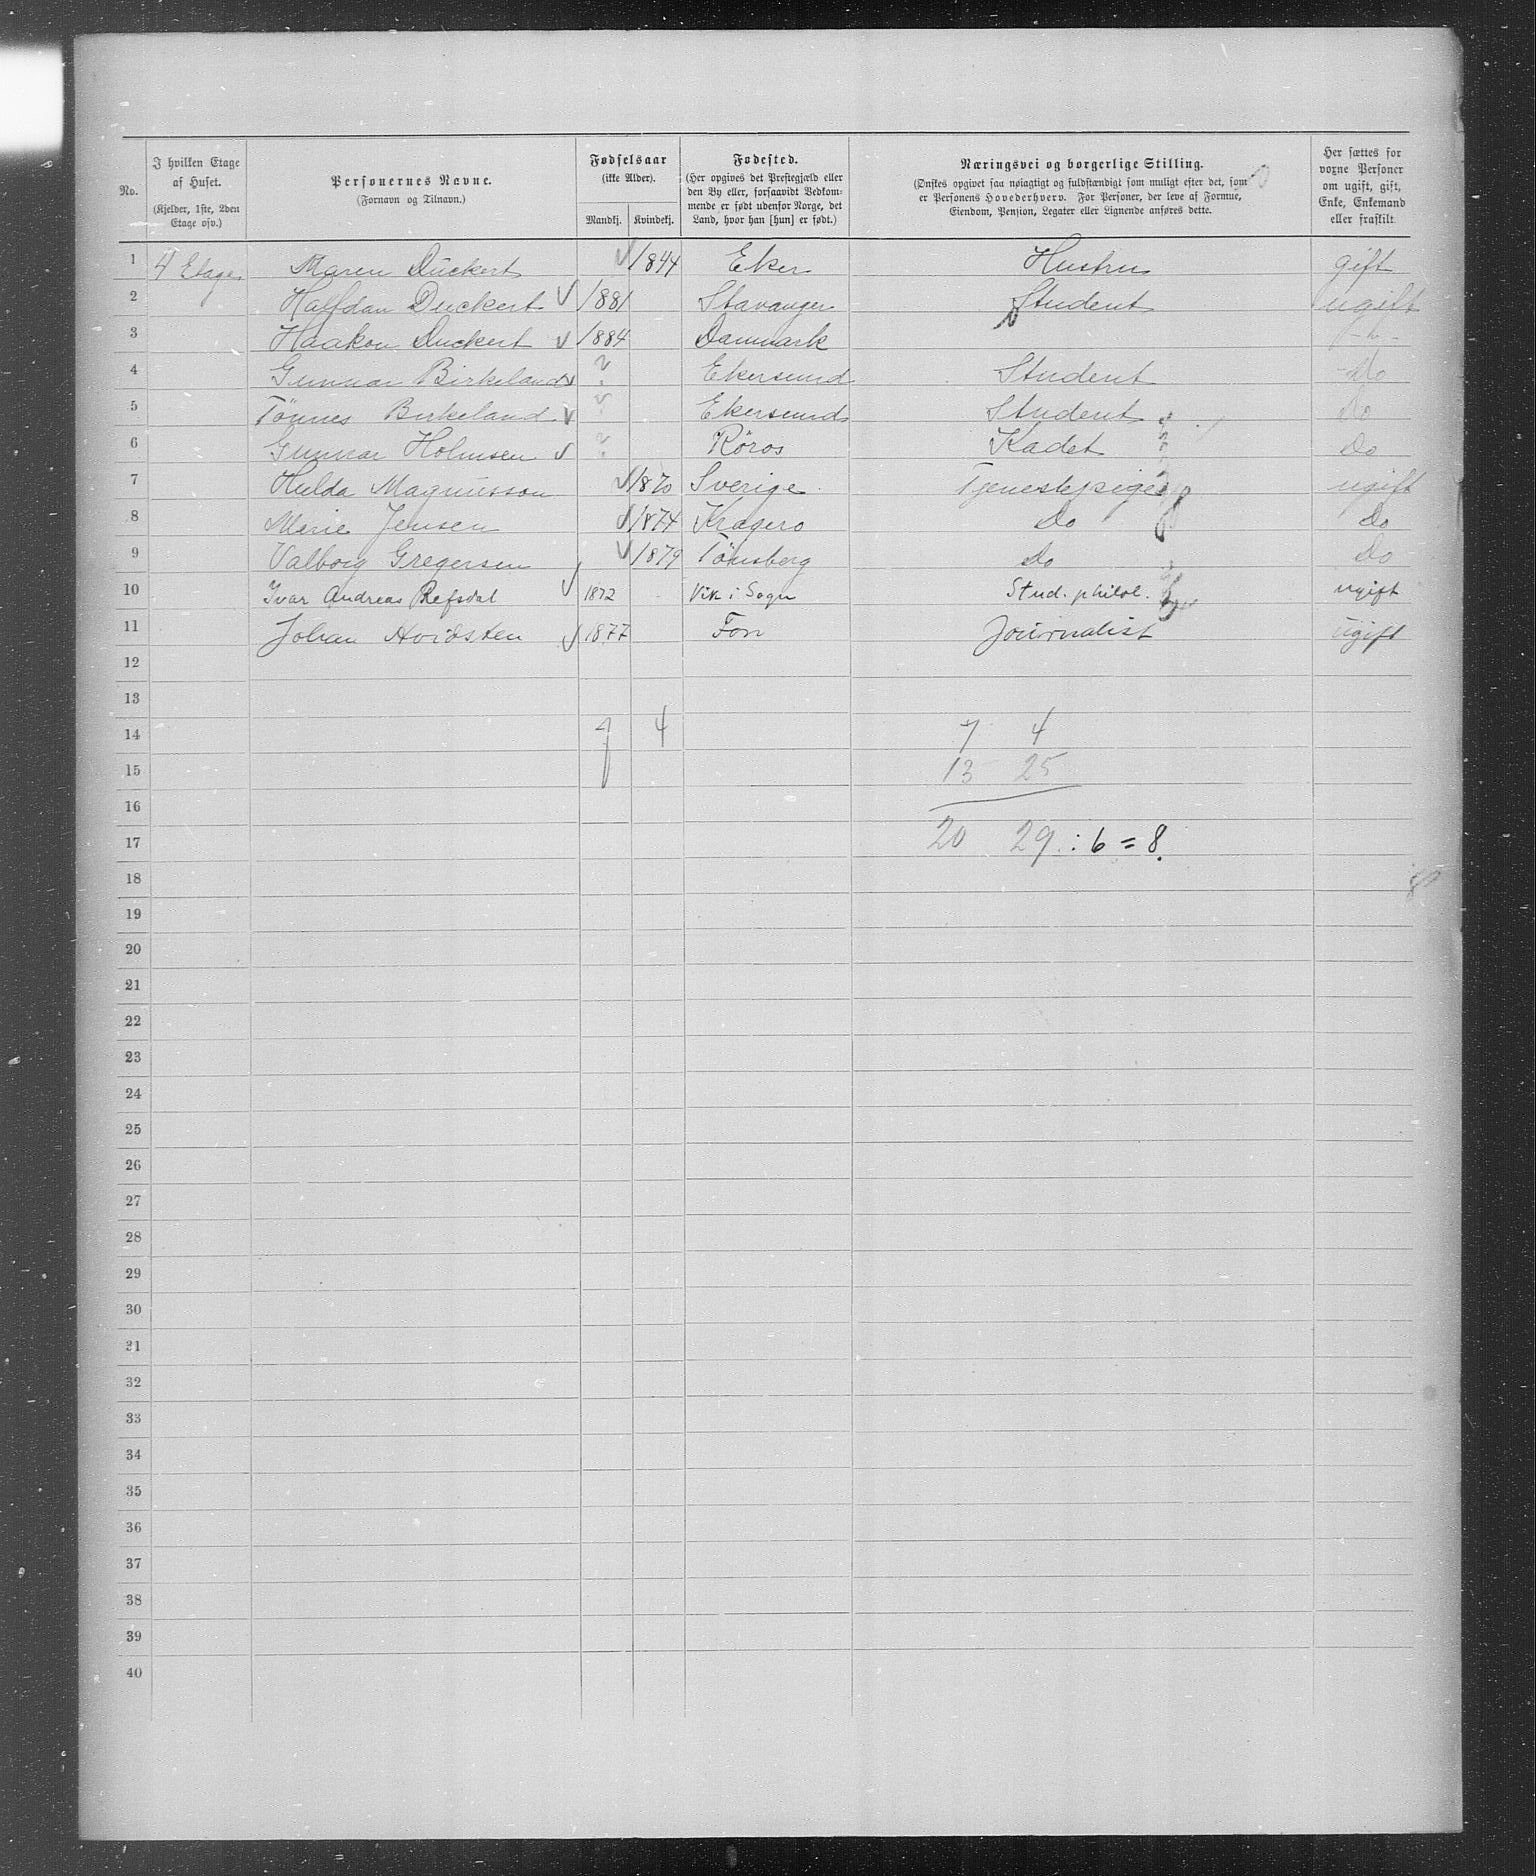 No.
I hvilken Etage af Huset.
(Kjelder, 1ste, 2den Etage osv.)
Personernes Navne.
(Fornavn og Tilnavn.)
Fødselsaar
(ikke Alder).
Mandkj. Kvindekj.
Fødested.
(Her opgives det Prestegjæld eller
den By eller, forsaavidt Vedkom-
mende er født udenfor Norge, det
Land, hvor han [hun] er født.)
Næringsvei og borgerlige Stilling.
(Ønskes opgivet saa nøiagtigt og fuldstændigt som muligt efter det, som
er Personens Hovederhverv. For Personer, der leve af Formue,
Eiendom, Pension, Legater eller Lignende anføres dette.
Her sættes for
voxne Personer
om ugift, gift,
Enke, Enkemand
eller fraskilt
1 4 Etage Maren Duckert √ 1844 Eker Hustru gift
2 Halfdan Duckert √ 1881 Stavanger Student ugift
3 Haakon Duckert √ 1884 Danmark
4 Gunnar Birkeland √ ? Ekersund Student Do
5 Tönnes Birkeland √ ? Ekersund Student Do
6 Gunnar Holmsen √ ? Röros Kadet Do
7 Hulda Magnusson √ 1870 Sverige Tjenestepige ugift
8 Marie Jensen √ 1874 Kragerø Do Do
9 Valborg Gregersen √ 1879 Tönsberg Do Do
10 Ivar Andreas Refsdal √ 1872 Vik i Sogn Stud. philol. ugift
11 Johan Hvidsten √ 1877 Fon Journalist ugift
12
13
14 7 4 7 4
15 13 25
16
17 20 29 : 6 = 8.
18
19
20
21
22
23
24
25
26
27
28
29
30
31
32
33
34
35
36
37
38
39
40